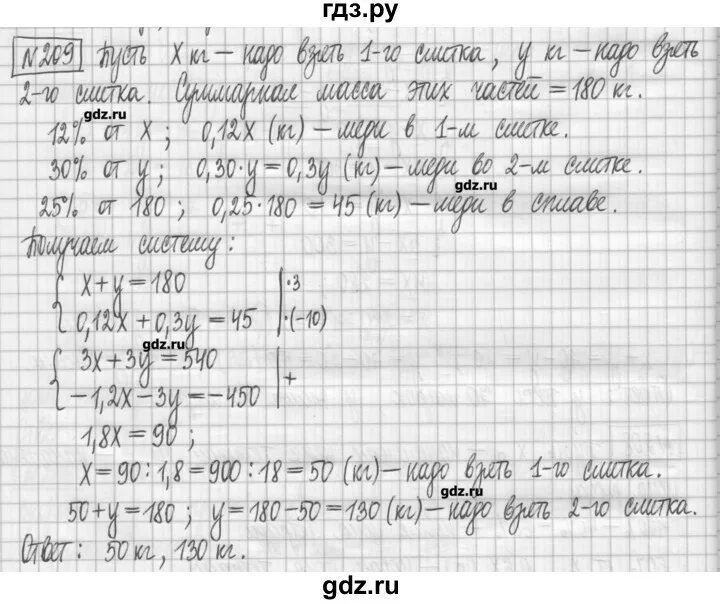 гдз.ру
№209 Пусть x кг – надо взять 1-го слитка, y кг – надо взять
2-го слитка. Суммарная масса этих частей = 180 кг.
gdz.ru
12% от x ; 0,12x (кг) – меди в 1-м слитке.
30% от y ; 0,30·y = 0,3y (кг) – меди во 2-м слитке.
gdz.ru
25% от 180 ; 0,25·180 = 45 (кг) – меди в сплаве.
Получаем систему:
{ x + y = 180 | ·3
0,12x + 0,3y = 45 | ·(-10)
gdz.ru
{ 3x + 3y = 540
-1,2x - 3y = -450 | +
1,8x = 90 ;
x = 90 : 1,8 = 900 : 18 = 50 (кг) – надо взять 1-го слитка.
gdz.ru
50 + y = 180 ; y = 180 - 50 = 130 (кг) – надо взять 2-го слитка.
Ответ: 50 кг, 130 кг.
gdz.ru